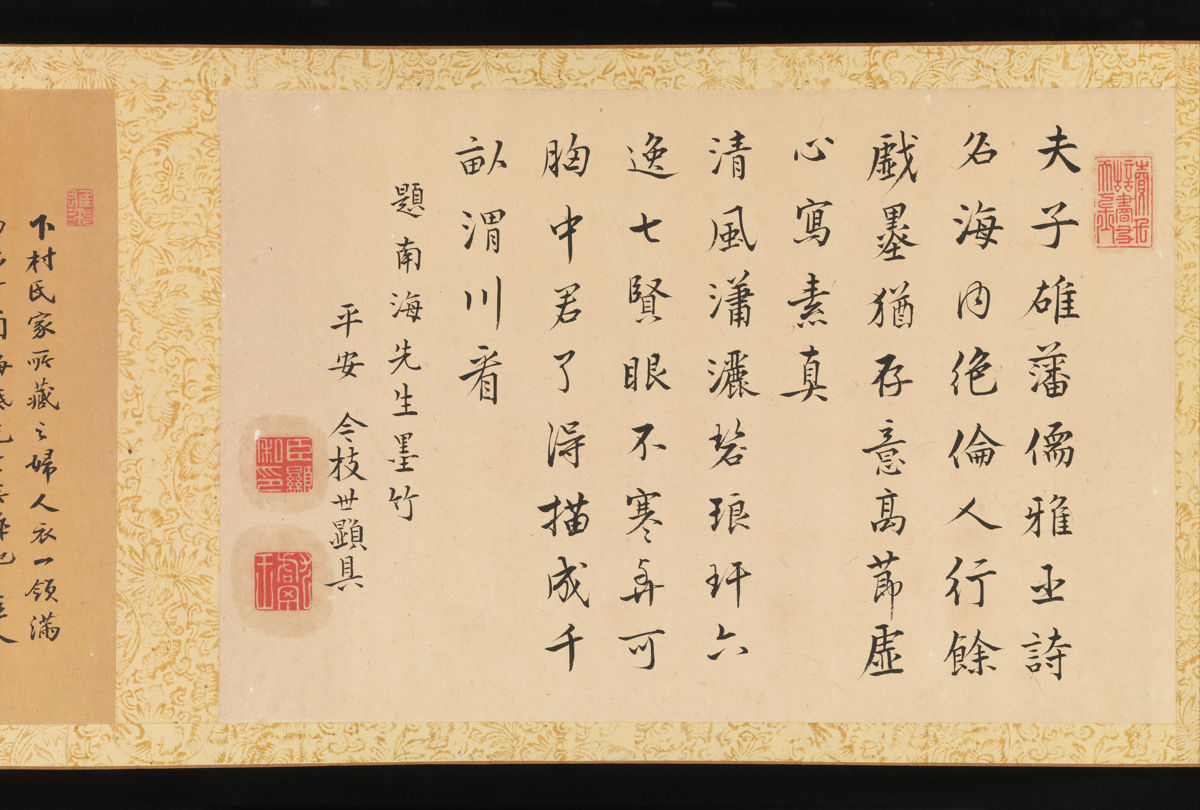 夫子雄藩儒雅正詩
名海内絶倫人行餘
戯墨猶存意高莭虚
心寫素真
清風瀟灑碧琅玕六
逸七賢眼不寒弄可
胸中君了得描成千
畝渭川看
題南海先生墨竹
平安 今枝世顕具
卞村氏家所藏之婦人衣一領滿